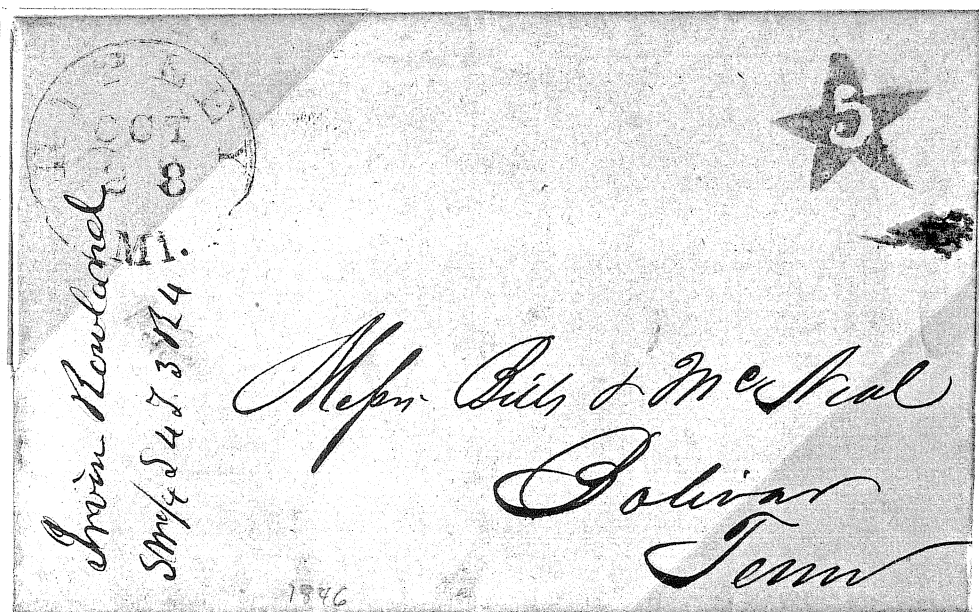 RIPLEY
OCT
8
MI.
5
Irvin Rowland
SW/4 S 4 T. 3 R 4
Messrs Bills & McNeal
Bolivar
Tenn
1846